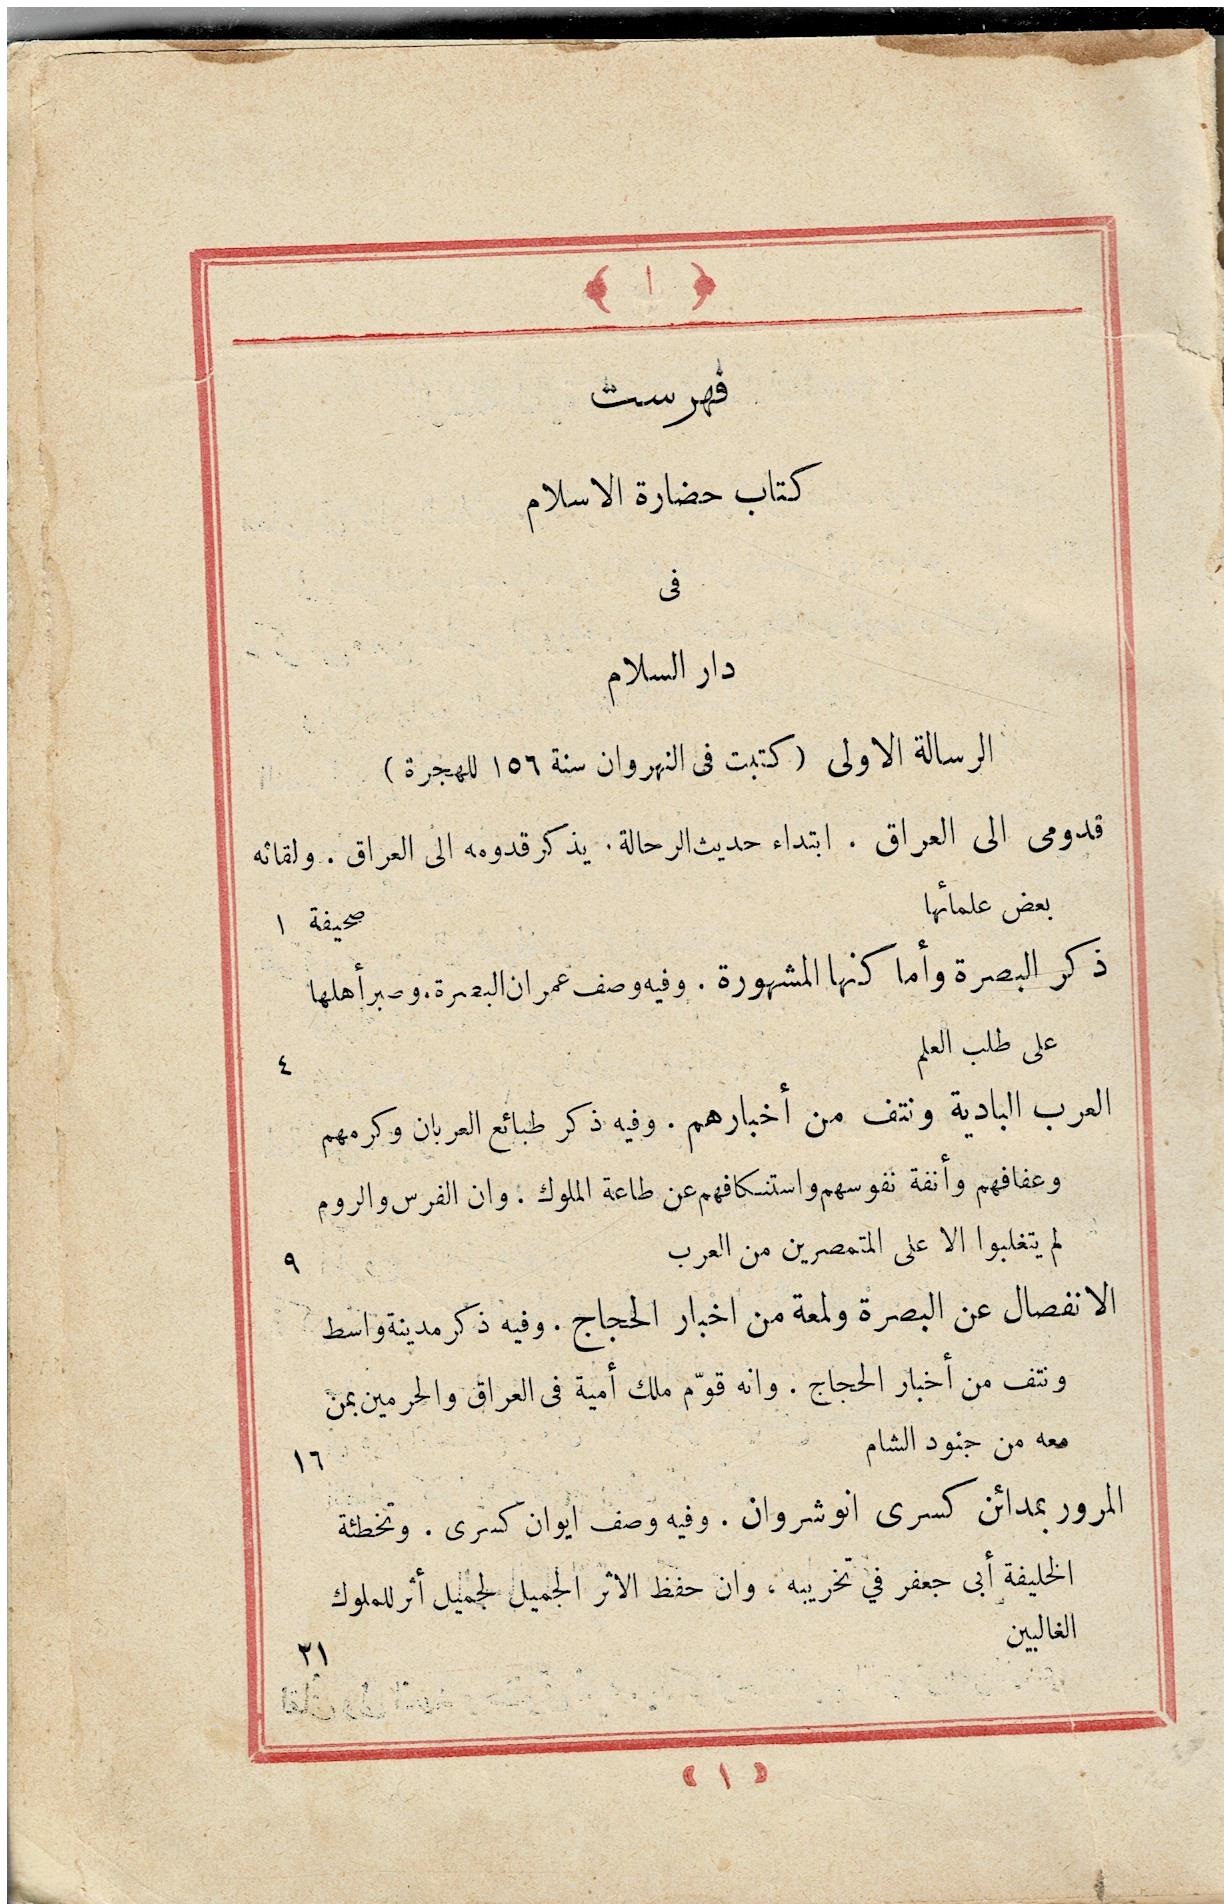 ﴿ ١ ﴾
فهرست
كتاب حضارة الاسلام
فى
دار السلام
الرسالة الاولى (كتبت فى النهروان سنة ١٥٦ للهجرة)
قدومى الى العراق . ابتداء حديث الرحالة . يذكر قدومه الى العراق . ولقائه
بعض علمائها صحيفة ١
ذكر البصرة وأماكنها المشهورة . وفيه وصف عمران البصرة . وصبر أهلها
على طلب العلم ٤
العرب البادية ونتف من أخبارهم . وفيه ذكر طبائع العربان وكرمهم
وعفافهم وأنفة نفوسهم واستنكافهم عن طاعة الملوك . وان الفرس والروم
لم يتغلبوا الا على المتمصرين من العرب ٩
الانفصال عن البصرة ولمعة من اخبار الحجاج . وفيه ذكر مدينة واسط
ونتف من أخبار الحجاج . وانه قوّم ملك أمية فى العراق والحرمين بمن
معه من جنود الشام ١٦
المرور بمدائن كسرى انوشروان . وفيه وصف ايوان كسرى . وتخطئة
الخليفة أبى جعفر في تخريبه ، وان حفظ الاثر الجميل لجميل أثر للملوك
الغالبين ٢١
﴿ ١ ﴾